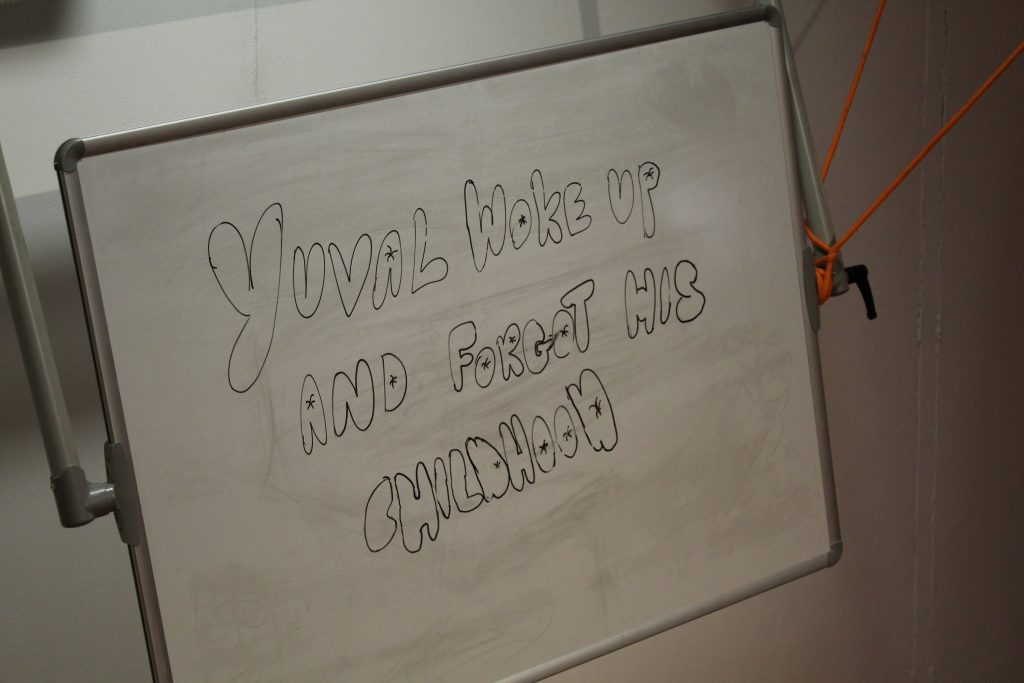 YUVAL WOKE UP
AND FORGOT HIS
CHILDHOOD